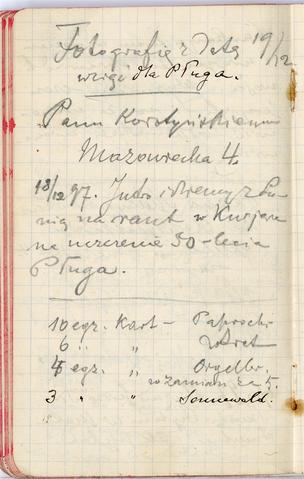 Fotografię z datą 19/12
wziąć dla Pługa.
Panu Korotyńskiemu
Mazowiecka 4.
18/12 97. Jutro idziemy z Lu-
nią na raut w Kurjerze
na uczczenie 50-lecia
Pługa.
10 egz. Kart — Paprocki
6 " " Arct
4 egz. " Orgelbr.
w zamian za 5.
3 " " Sennewald.